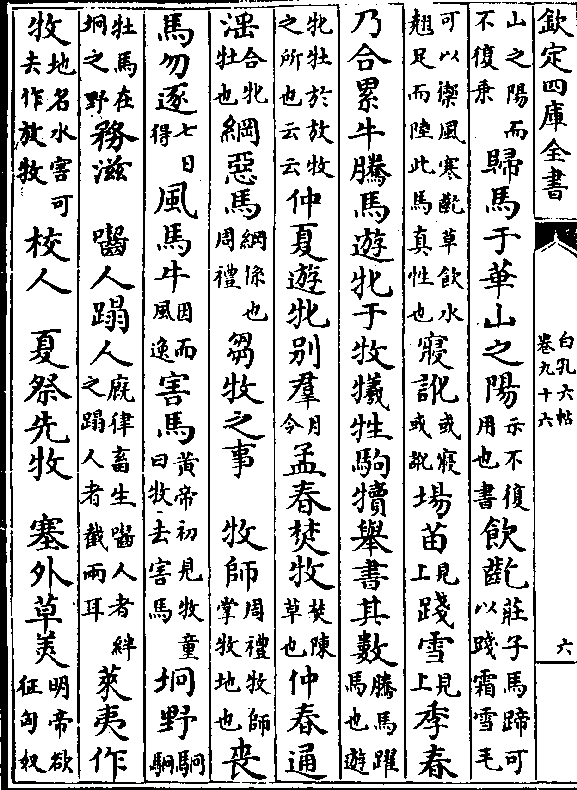 欽定四庫全書
白孔六帖
卷九十六
六
山之陽而不復乗 歸馬于華山之陽 示不復用也書 飲齕 莊子馬蹄可以踐霜雪毛
可以禦風寒齕草飲水翹足而陸此馬真性也 寢訛 或寢或訛 場苗 見上 踐雪 見上 季春
乃合累牛騰馬遊牝于牧犧牲駒犢舉書其數 騰馬躍馬也遊
牝牡於放牧之所也云云 仲夏遊牝别羣 月令 孟春焚牧 焚陳草也 仲春通
淫 合牝牡也 綱惡馬 綱係也周禮 芻牧之事 牧師 周禮牧師掌牧地也 喪
馬勿逐 七日得 風馬牛 因而風逸 害馬 黄帝初見牧童曰牧去害馬 坰野 駉駉
牡馬在坰之野 務滋 嚙人蹋人 厩律畜生嚙人者絆之蹋人者截兩耳 萊夷作
牧 地名水害可去作放牧 校人 夏祭先牧 塞外草美 明帝欲征匈奴